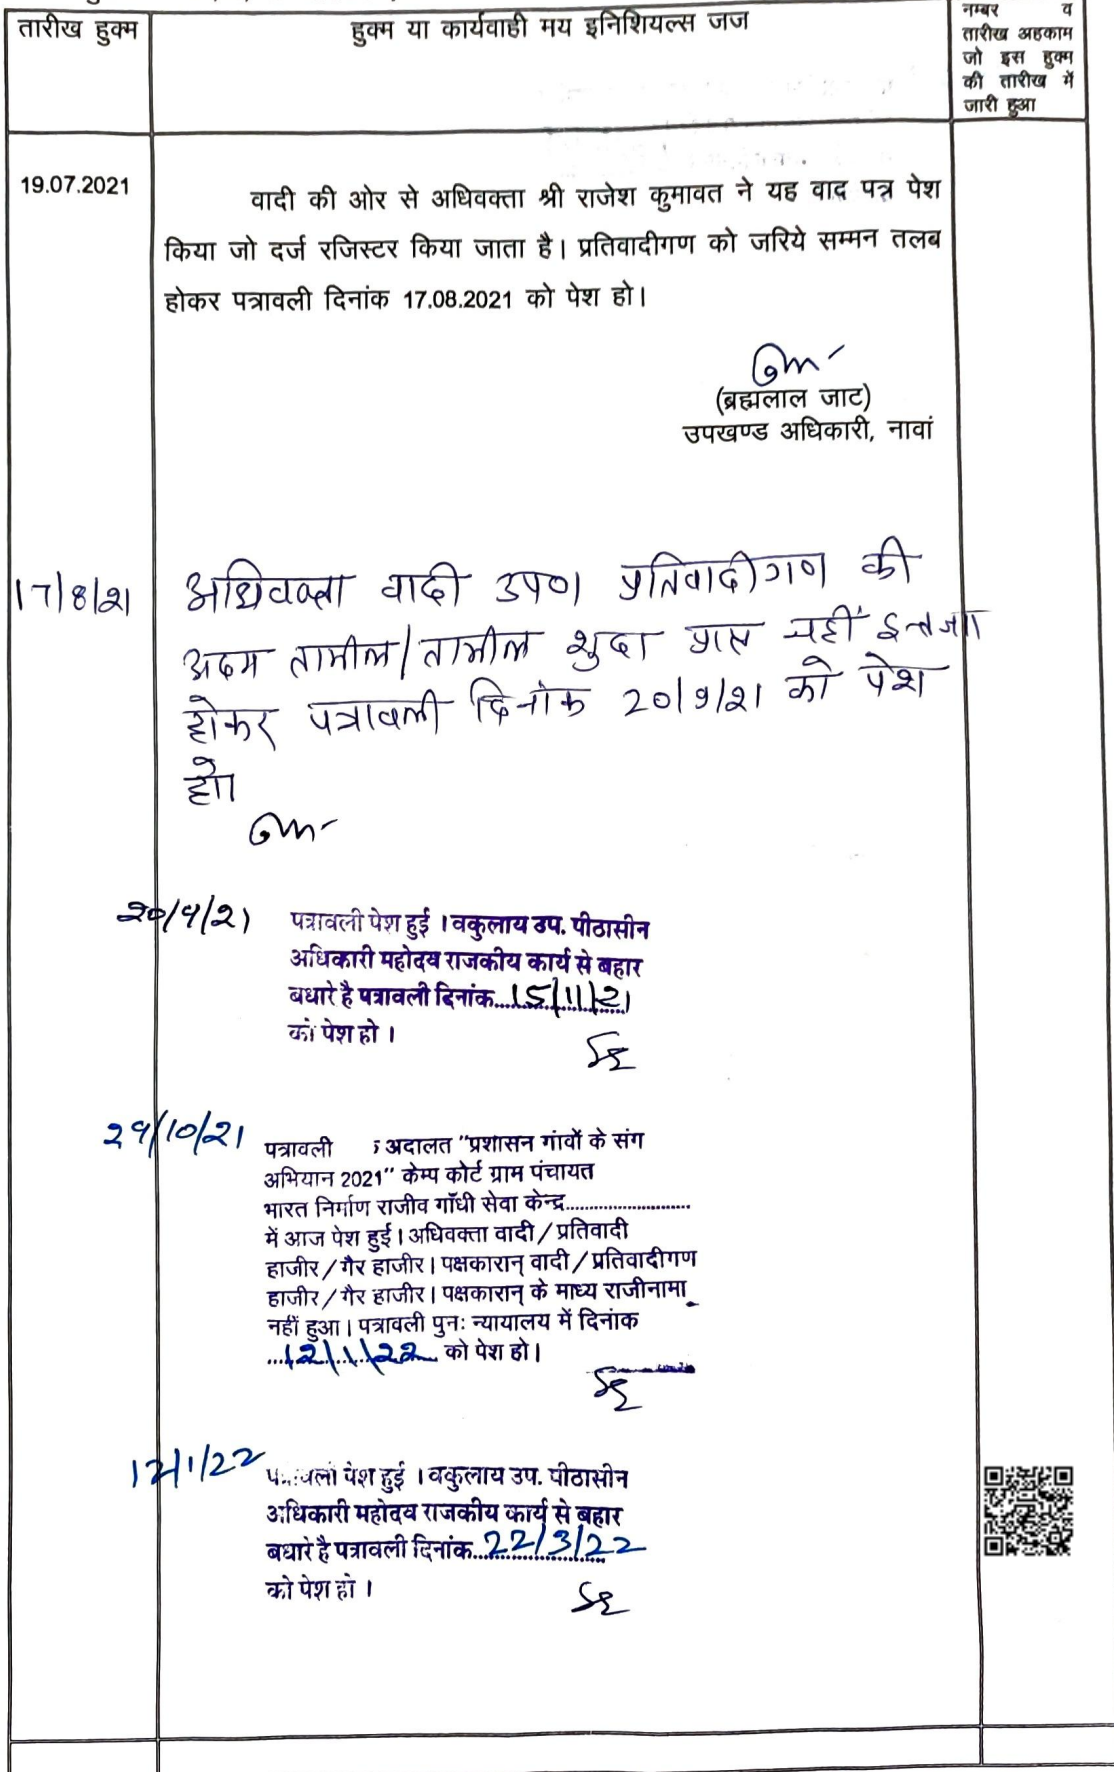 तारीख हुक्म
हुक्म या कार्यवाही मय इनिशियल्स जज
नम्बर व
तारीख अहकाम
जो इस हुक्म
की तारीख में
जारी हुआ
19.07.2021
वादी की ओर से अधिवक्ता श्री राजेश कुमावत ने यह वाद पत्र पेश
किया जो दर्ज रजिस्टर किया जाता है। प्रतिवादीगण को जरिये सम्मन तलब
होकर पत्रावली दिनांक 17.08.2021 को पेश हो।
(ब्रह्मलाल जाट)
उपखण्ड अधिकारी, नावां
17/8/21
अधिवक्ता वादी उप० प्रतिवादीगण की
अदम तामील/तामील शुदा प्राप्त नहीं इन्तजा
होकर पत्रावली दिनांक 20/9/21 को पेश
हो।
20/9/21
पत्रावली पेश हुई । वकुलाय उप. पीठासीन
अधिकारी महोदय राजकीय कार्य से बहार
बधारे है पत्रावली दिनांक...15/11/21
को पेश हो ।
29/10/21
पत्रावली अदालत "प्रशासन गांवों के संग
अभियान 2021" केम्प कोर्ट ग्राम पंचायत
भारत निर्माण राजीव गाँधी सेवा केन्द्र..........................
में आज पेश हुई। अधिवक्ता वादी/प्रतिवादी
हाजीर/गैर हाजीर। पक्षकारान् वादी/प्रतिवादीगण
हाजीर/गैर हाजीर। पक्षकारान् के माध्य राजीनामा
नहीं हुआ। पत्रावली पुनः न्यायालय में दिनांक
...12/1/22 को पेश हो।
12/1/22
पत्रावली पेश हुई । वकुलाय उप. पीठासीन
अधिकारी महोदय राजकीय कार्य से बहार
बधारे है पत्रावली दिनांक...22/3/22
को पेश हो ।